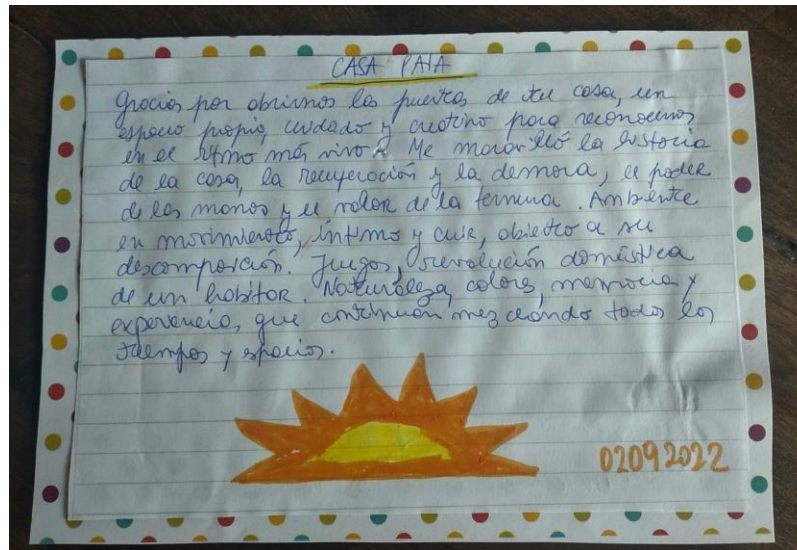 CASA PAIA
Gracias por abrirnos las puertas de tu casa, un
espacio propio, cuidado y creativo para reconocernos
en el ritmo más vivo. Me maravilló la historia
de la casa, la recuperación y la demora, el poder
de las manos y el valor de la ternura. Ambiente
en movimiento, íntimo y cuir, abierto a su
descomposición. Juegos, revolución doméstica
de un habitar. Naturaleza, colores, memoria y
experiencia, que continúan mezclando todos los
tiempos y espacios.
02092022